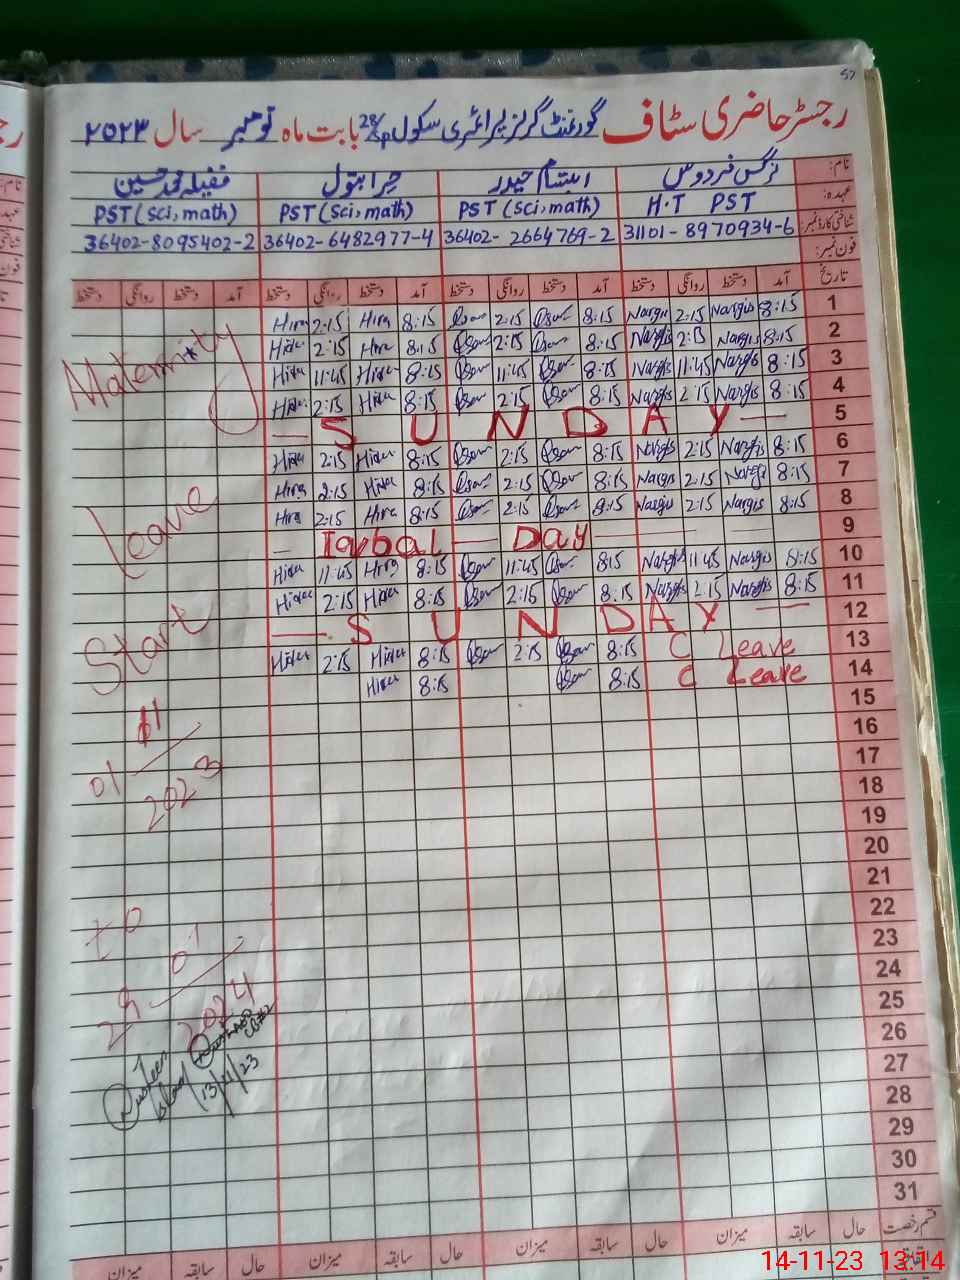 57
رجسٹر حاضری سٹاف گورنمنٹ گرلز پرائمری سکول 28/SP بابت ماہ نومبر سال ۲۰۲۳
نام: نرگس فردوس ابتسام حیدر حرا بتول محمد حسین
عہدہ: H.T PST PST (sci, math) PST (sci, math) PST (sci, math)
شناختی کارڈ نمبر: 31101-8970934-6 36402-2664769-2 36402-6482977-4 36402-8095402-2
فون نمبر:
تاریخ آمد دستخط روانگی دستخط آمد دستخط روانگی دستخط آمد دستخط روانگی دستخط آمد دستخط روانگی دستخط
Hira 2:15 Hira 8:15 2:15 8:15 Nargis 2:15 Nargis 8:15 1
Hira 2:15 Hira 8:15 2:15 8:15 Nargis Nargis 8:15 2
Hira 11:45 Hira 8:15 11:45 8:15 Nargis 11:45 Nargis 8:15 3
Hira 2:15 Hira 8:15 2:15 8:15 Nargis 2:15 Nargis 8:15 4
— S U N D A Y — 5
Hira 2:15 Hira 8:15 2:15 8:15 Nargis 2:15 Nargis 8:15 6
Hira 2:15 Hira 8:15 2:15 8:15 Nargis 2:15 Nargis 8:15 7
Hira 2:15 Hira 8:15 2:15 8:15 Nargis 2:15 Nargis 8:15 8
— Iqbal — Day — 9
Hira 11:45 Hira 8:15 11:45 8:15 Nargis 11:45 Nargis 8:15 10
Hira 2:15 Hira 8:15 2:15 8:15 Nargis 2:15 Nargis 8:15 11
— S U N D A Y — 12
Hira 2:15 Hira 8:15 2:15 8:15 C Leave 13
Hira 8:15 8:15 C Leave 14
15
16
17
18
19
20
21
22
23
24
25
26
27
28
29
30
31
Maternity
Leave
Start
01/11/2023
to
29/01/2024
13/11/23
قسم رخصت حال سابقہ میزان حال سابقہ میزان حال سابقہ میزان حال سابقہ میزان
14-11-23 13:14